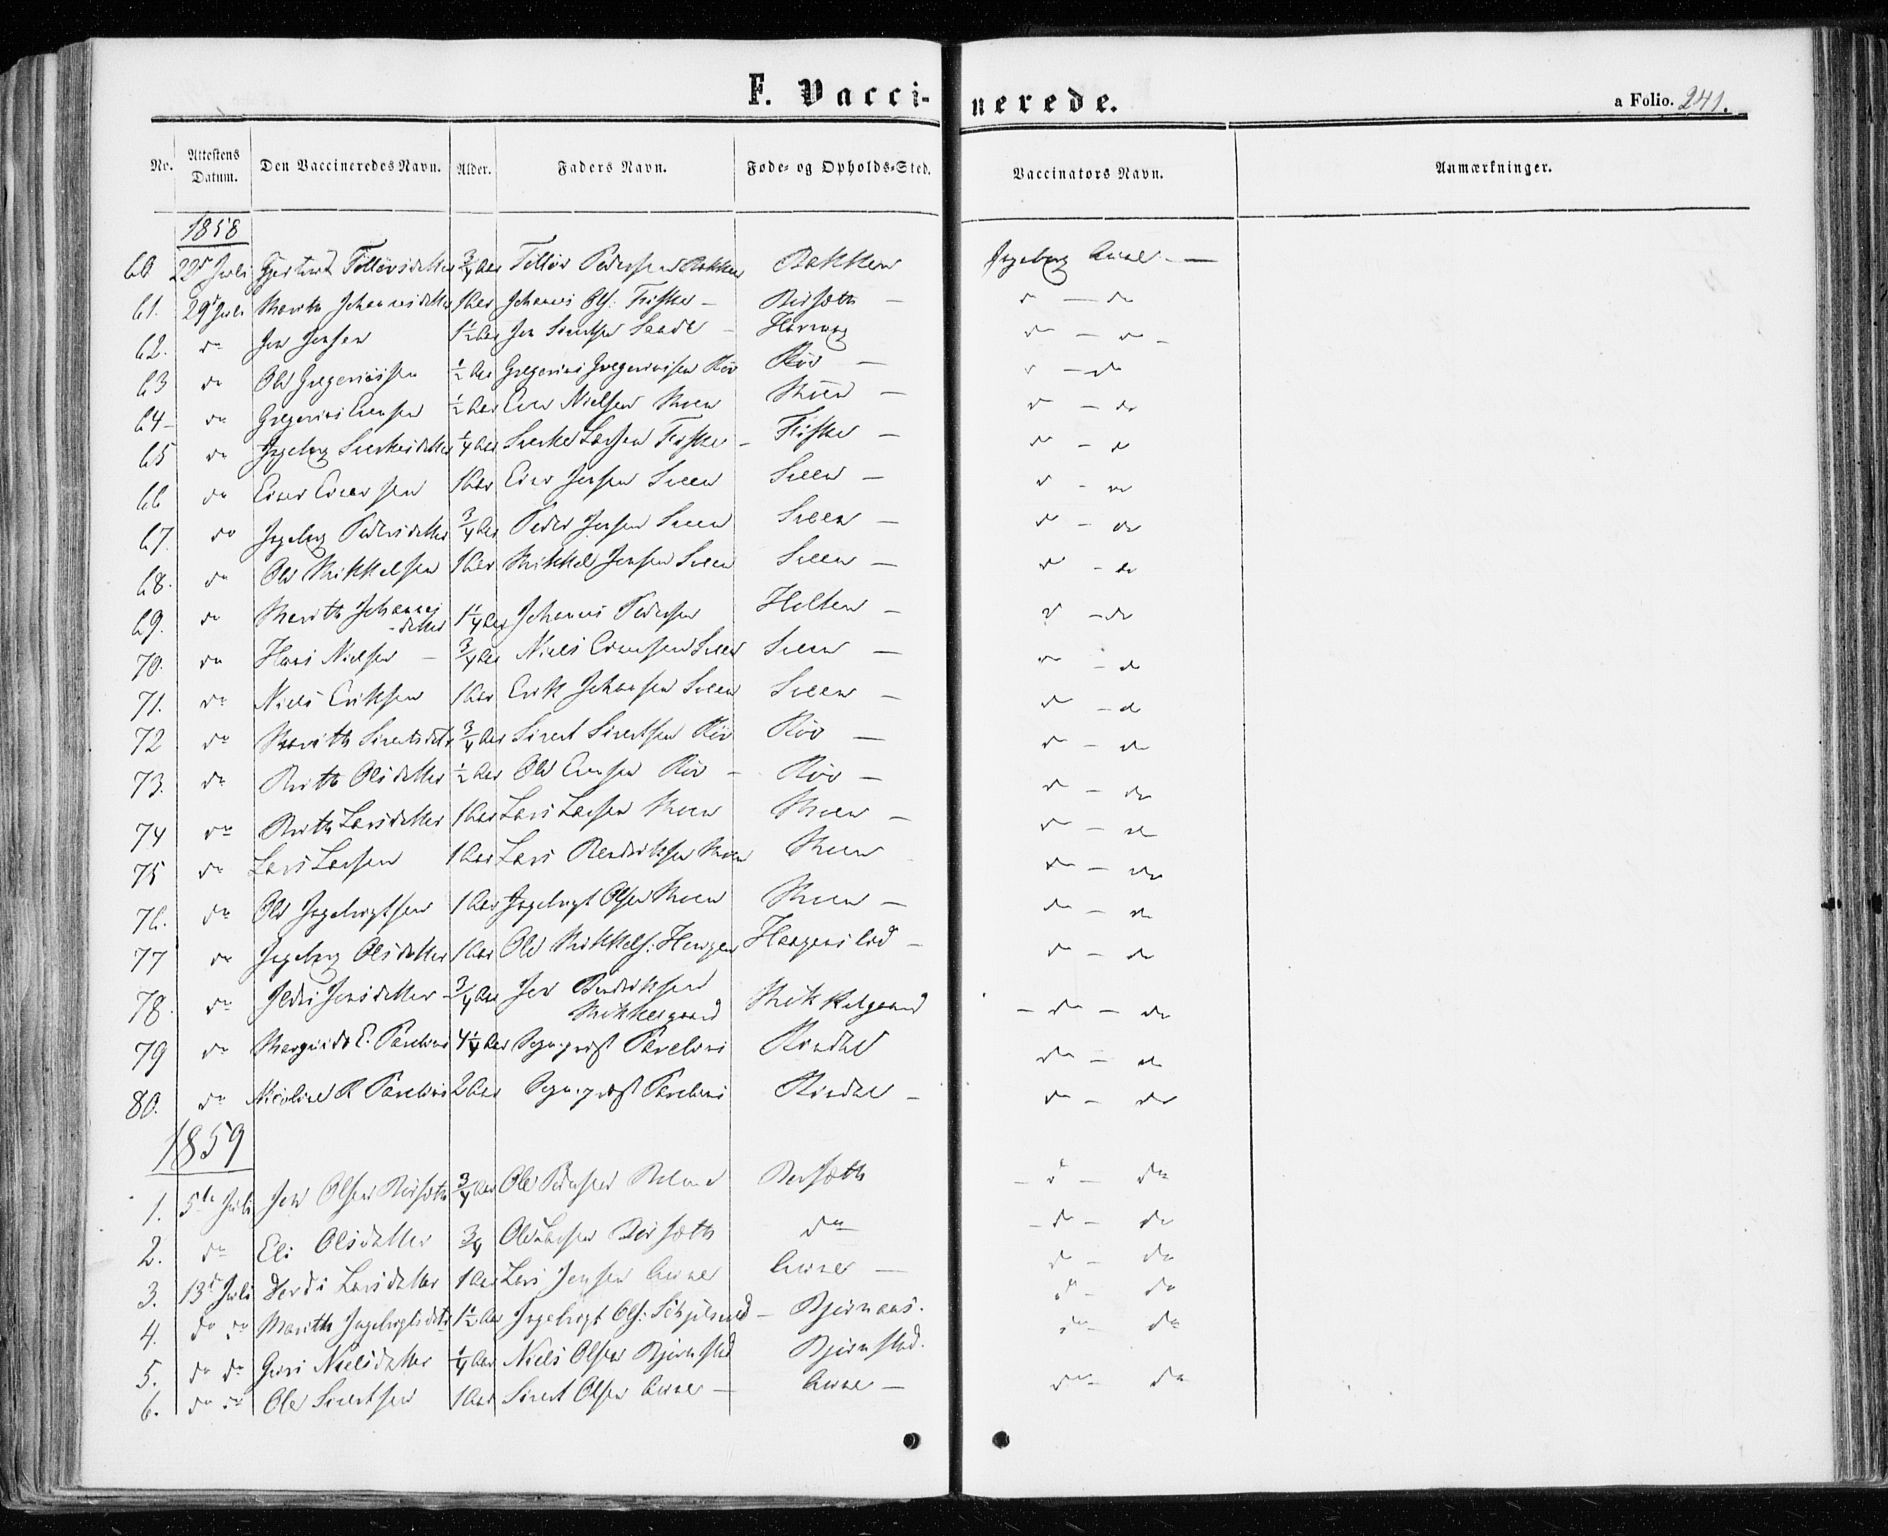 F. Vaccinerede.
a Folio. 241.
No. Attestens Datum. Den Vaccineredes Navn. Alder. Faders Navn. Føde- og Opholds-Sted. Vaccinators Navn. Anmærkninger.
1858
60 22de Juli Gjertrud Tølløvsdatter 3/4 Aar Tølløv Pedersen Bakken Bakken Ingeborg —
61. 29de Juli Marith Johannesdatter 1 Aar Johanes Ols: Fiske — Bersæth — do — do
62. do Jon Jonsen 1 1/2 Aar Jon Sivertsen — do — do —
63 do Ole Gregoriusen 1/2 Aar Gregorius Gregoriusen Röv Röv — do — do
64 — do Gregorius Evensen 1/2 Aar Even Nielsen Moen Moen — do — do
65 do Ingeborg Sverkesdatter 1/4 Aar Sverke Larsen Fiske — Fiske — do — do
66 do Einar Einarsen 1 Aar Einar Jonsen Sveen Sveen — do — do
67. do Ingeborg Pedersdatter 3/4 Aar Peder Jonsen Sveen Sveen — do — do
68. do Ole Mikkelsen 1 Aar Mikkel Jonsen Sveen Sveen — do — do
69. do Marith Johannes-
datter 1 1/4 Aar Johannes Pedersen Holten — do — do
70. do Hans Nielsen — 3/4 Aar Niels Evensen Sveen Sveen — do — do
71. do Niels Eriksen 1 Aar Erik Johansen Sveen Sveen — do — do
72 do Marith Sivertsdatr 3/4 Aar Sivert Sivertsen Röv Röv — do — do
73. do Brith Olsdatter 1/2 Aar Ole Evensen Röv — Röv — do — do
74 do Brith Larsdatter 1 Aar Lars Larsen Moen Moen — do — do
75 do Lars Larsen 1 Aar Lars Bendriksen Moen Moen do — do
76. do Ole Ingebrigtsen 1 Aar Ingebrigt Olsen Moen Moen — do — do
77 do Ingeborg Olsdatter 1 Aar Ole Mikkels: Haugen — do — do
78. do Ildri Jonsdatter 3/4 Aar Jon Bendriksen
Mikkelgaard Mikkelgaard — do — do
79 do Margrethe E. Parelius 4 1/4 Aar Sogneprest Parelius Rindal do — do
80. do Nicoline R Parelius 2 Aar Sogneprest Parelius Rindal — do — do
1859
1. 5te Juli Jon Olsen Bersæth 3/4 Aar Ole Pedersen Bersæth — do do
2. do Eli Olsdatter 3/4 Ole Larsen Bersæth do — do — do
3. 13de Juli Larsdatter 1 Aar Lars Jonsen — do — do
4. do do Marith Ingebrigtsdatr 1 1/2 Aar Ingebrigt Ols: — Bjørnaas. do — do
5. do do Guri Nielsdatter 1/4 Aar Niels Olsen Bjørnstad Bjørnstad. do — do
6. do do Ole Sivertsen 1 Aar Sivert Olsen — — do — do